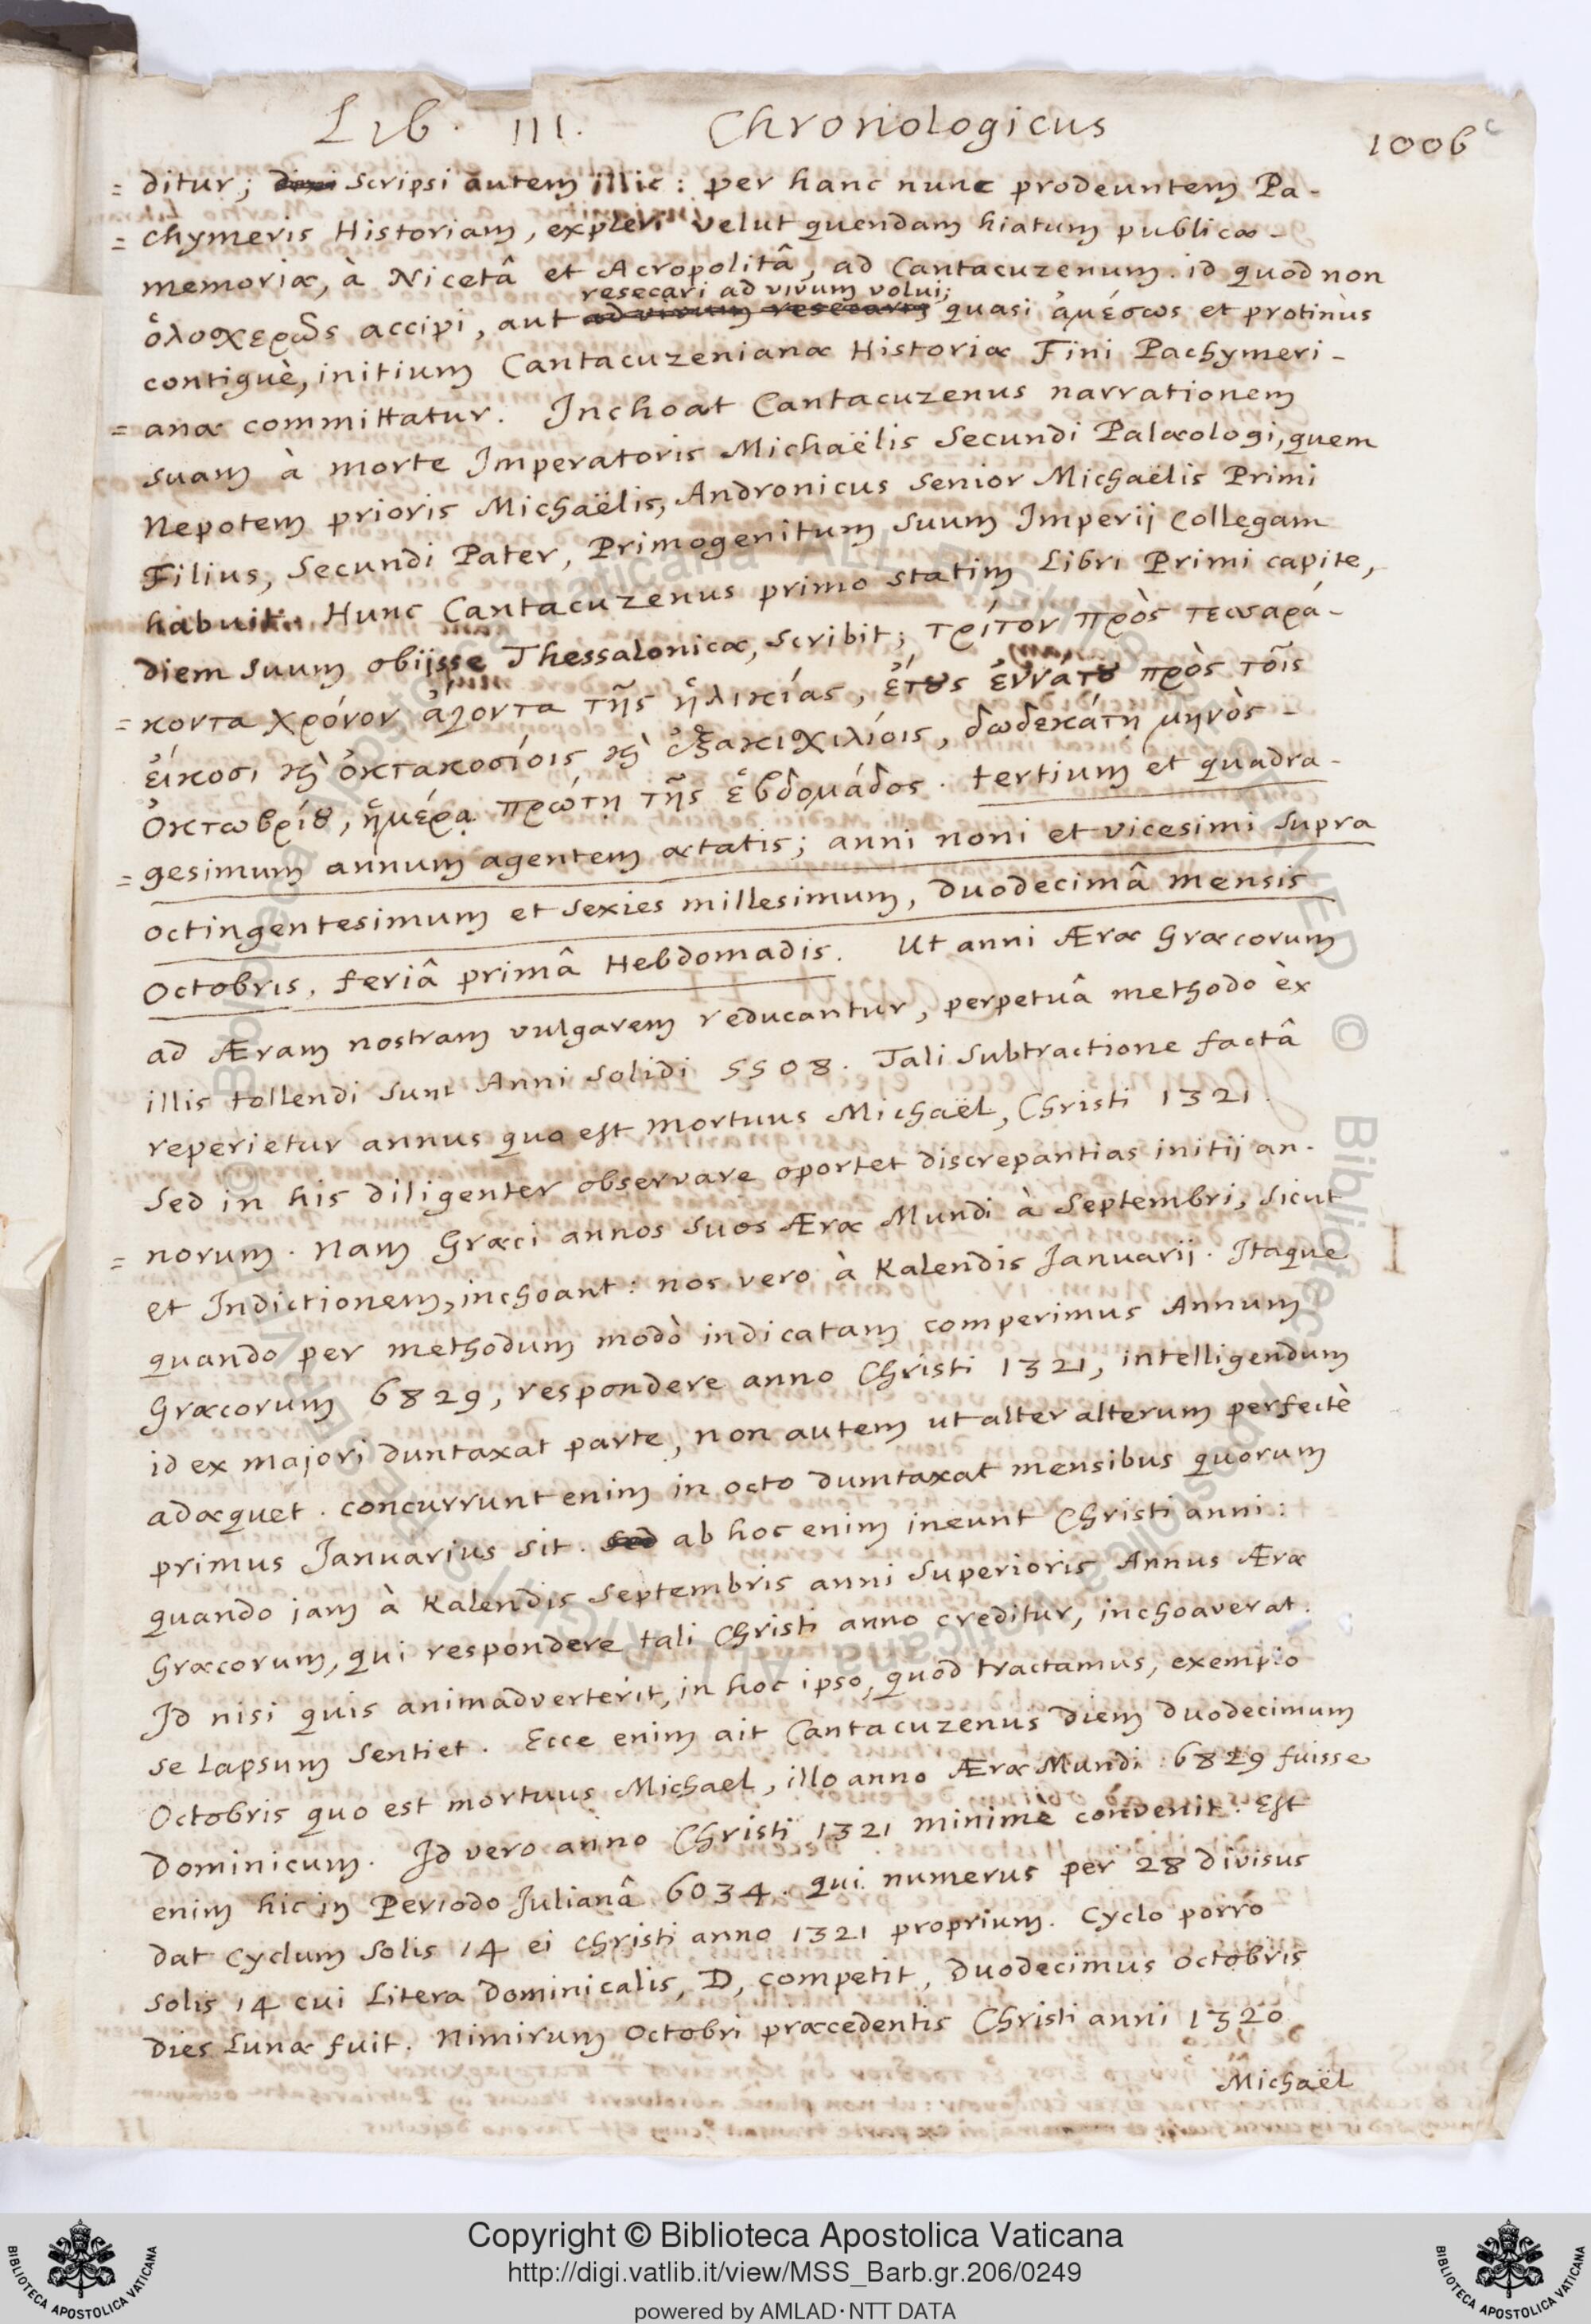 Lib. III. Chronologicus 1006 c
= ditur; scripsi autem illic: per hanc nunc prodeuntem Pa-
= chymeris Historiam, expleri velut quendam hiatum publicæ
memoriæ, à Nicetâ et Acropolitâ, ad Cantacuzenum. id quod non
resecari ad vivum volui;
ὁλοσχερῶς accipi, aut ad vivum resecari quasi ἀμέσως et protinùs
contiguè, initium Cantacuzenianæ Historiæ Fini Pachymeri-
= anæ committatur. Inchoat Cantacuzenus narrationem
suam à morte Imperatoris Michaëlis Secundi Palæologi, quem
Nepotem prioris Michaëlis, Andronicus Senior Michaëlis Primi
Filius, Secundi Pater, Primogenitum suum Imperij Collegam
habuit. Hunc Cantacuzenus primo statim Libri Primi capite,
diem suum obijsse Thessalonicæ, scribit; τρίτον πρὸς τεσσαρά-
= κοντα χρόνον ἄγοντα τῆς ἡλικίας, ἔτους ἐννάτου πρὸς τοῖς
εἴκοσι καὶ ὀκτακοσίοις καὶ ἑξακιχιλίοις, δωδεκάτῃ μηνὸς
Ὀκτωβρίου, ἡμέρᾳ πρώτῃ τῆς ἑβδομάδος. tertium et quadra-
= gesimum annum agentem ætatis; anni noni et vicesimi supra
octingentesimum et sexies millesimum, duodecimâ mensis
Octobris, feriâ primâ Hebdomadis. Ut anni Æræ Græcorum
ad Æram nostram vulgarem reducantur, perpetuâ methodo èx
illis tollendi sunt Anni solidi 5508. Tali subtractione factâ
reperietur annus quo est mortuus Michaël, Christi 1321.
Sed in his diligenter observare oportet discrepantias initij an-
= norum. Nam Græci annos suos Æræ Mundi à Septembri, sicut
et Indictionem, inchoant: nos vero à Kalendis Januarij. Itaque
quando per methodum modò indicatam comperimus Annum
Græcorum 6829, respondere anno Christi 1321, intelligendum
id ex majori duntaxat parte, non autem ut alter alterum perfectè
adæquet. concurrunt enim in octo dumtaxat mensibus quorum
primus Januarius sit. Sed ab hoc enim ineunt Christi anni:
quando jam à Kalendis Septembris anni superioris Annus Æræ
Græcorum, qui respondere tali Christi anno creditur, inchoaverat.
Id nisi quis animadverterit, in hoc ipso, quod tractamus, exemplo
se lapsum sentiet. Ecce enim ait Cantacuzenus diem duodecimum
Octobris quo est mortuus Michael, illo anno Æræ Mundi 6829 fuisse
Dominicum. Id vero anno Christi 1321 minimè convenit. Est
enim hic in Periodo Julianâ 6034. qui numerus per 28 divisus
dat Cyclum Solis 14 ei Christi anno 1321 proprium. Cyclo porrò
Solis 14 cui Litera Dominicalis, D, competit, duodecimus Octobris
dies Lunæ fuit. Nimirum Octobri præcedentis Christi anni 1320
Michaël
Copyright © Biblioteca Apostolica Vaticana
http://digi.vatlib.it/view/MSS_Barb.gr.206/0249
powered by AMLAD·NTT DATA
BIBLIOTECA APOSTOLICA VATICANA
BIBLIOTECA APOSTOLICA VATICANA